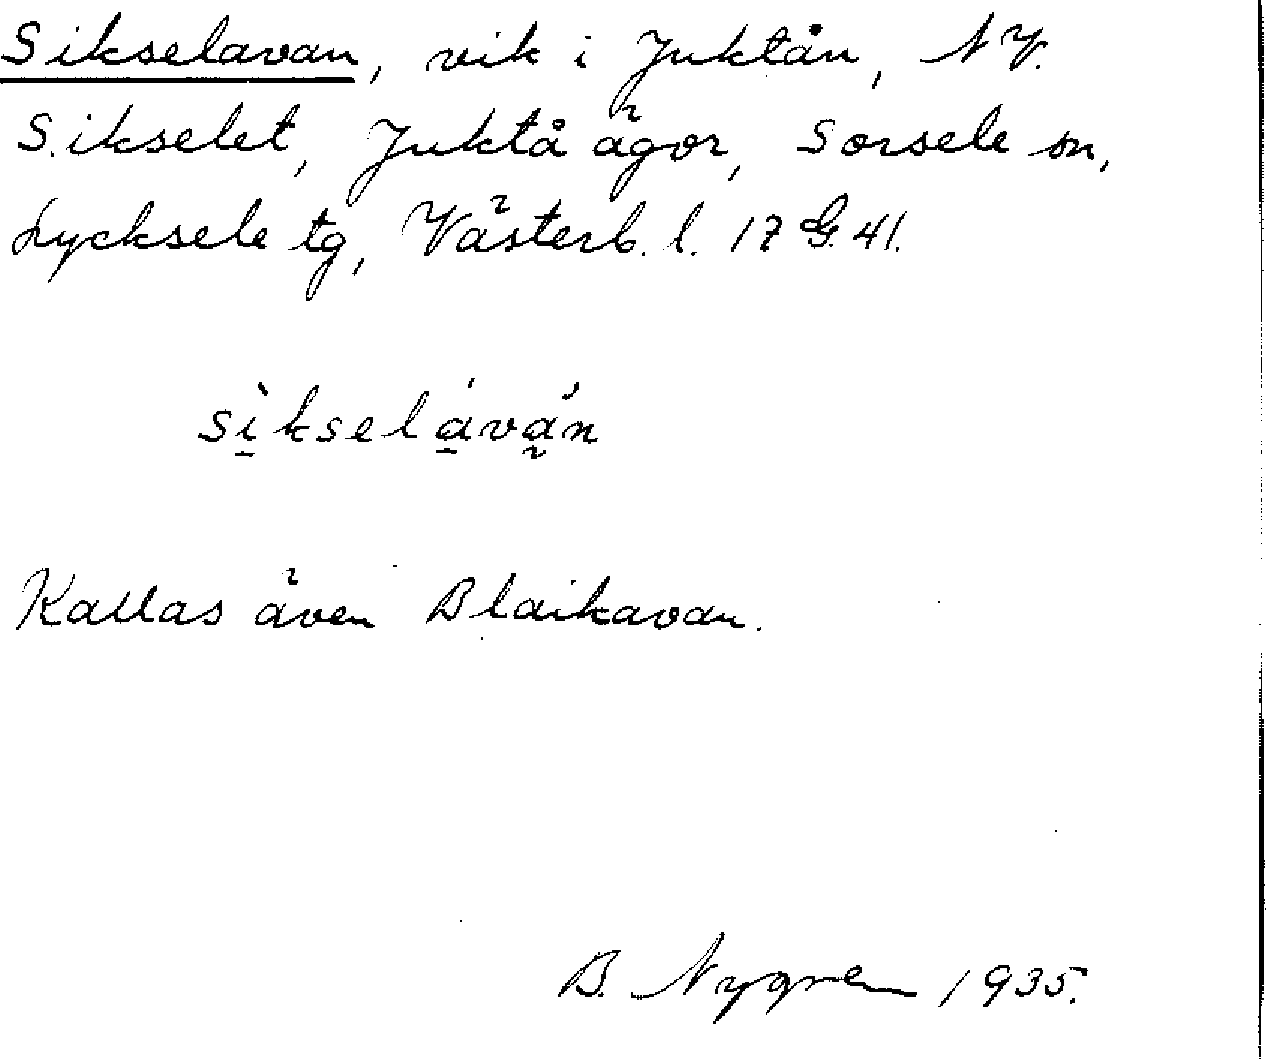 Sikselavan, vik i Juktån, NV.
Sikselet, Juktå ägor, Sorsele sn,
Lycksele tg, Västerb. l. 17 G. 41.
sı̠̀ksela̠̍va̰̍n
Kallas även Blaikavan.
B. Nygren 1935.